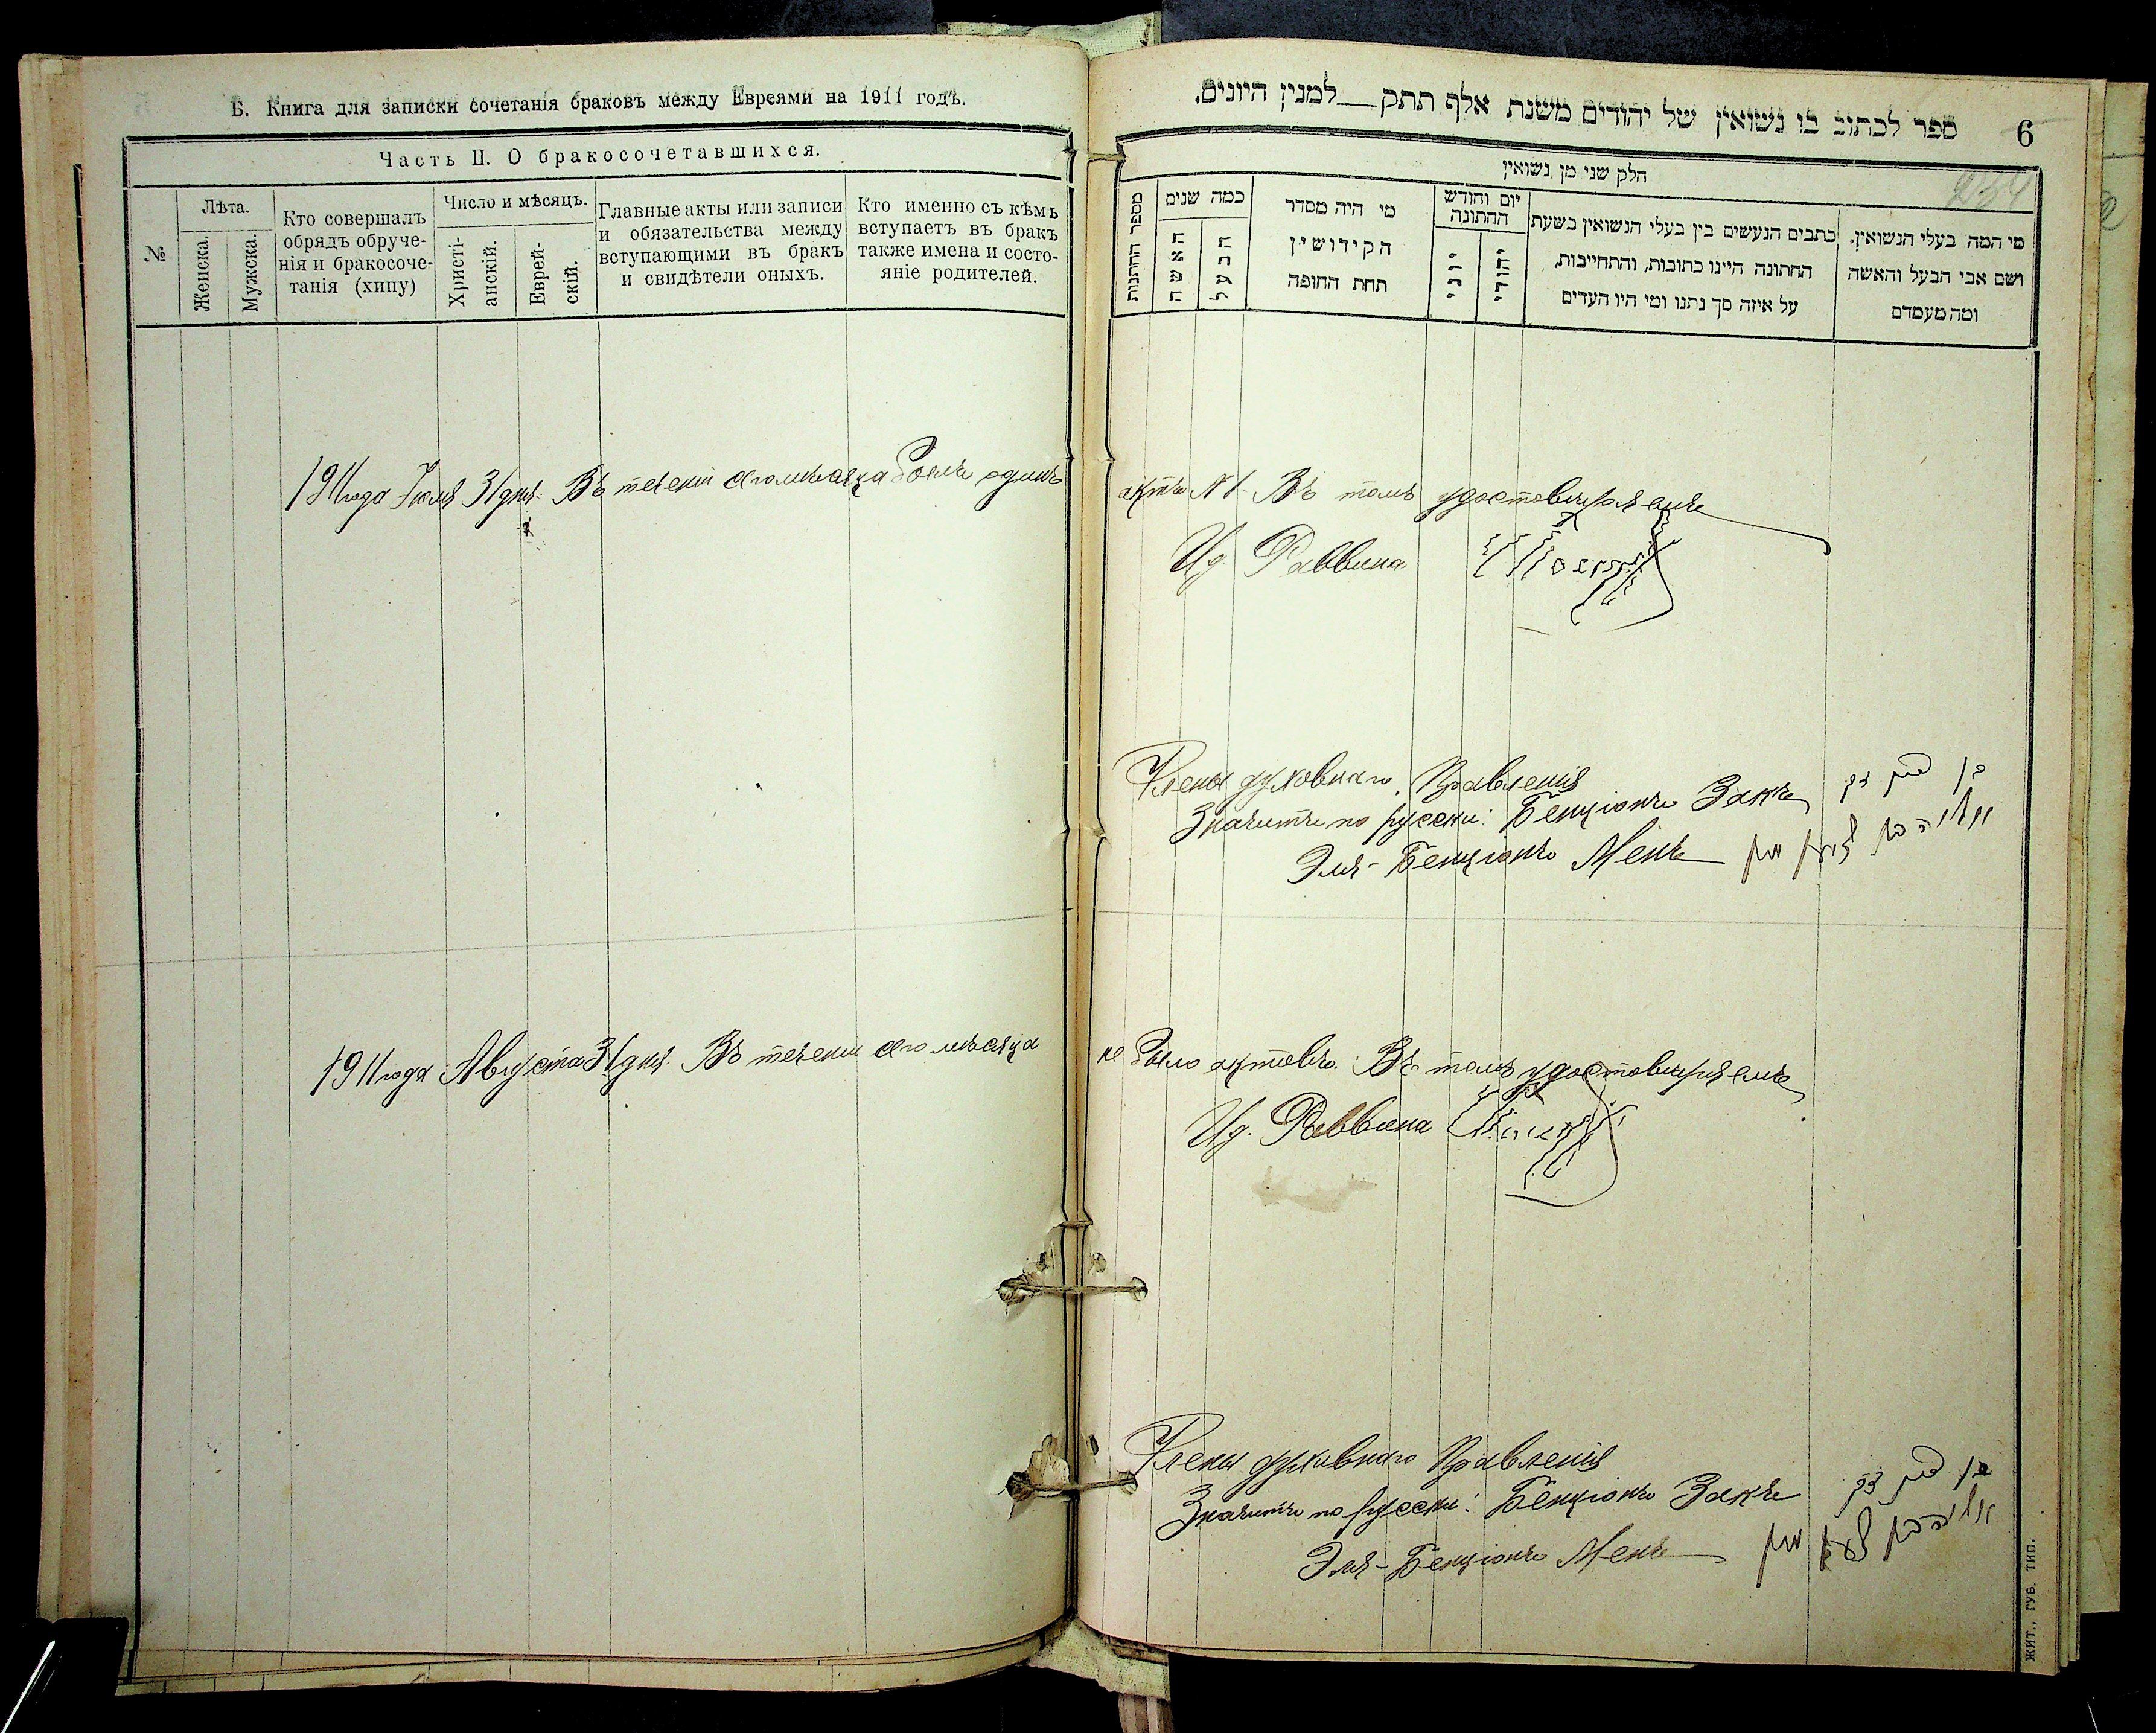 Б. Книга для записки сочетанія браковъ между Евреями на 1911 годъ.
Часть II. О бракосочетавшихся.
№
Лѣта.
Женска.
Мужска.
Кто совершалъ
обрядъ обруче-
нія и бракосоче-
танія (хипу)
Число и мѣсяцъ.
Христі-
анскій.
Еврей-
скій.
Главные акты или записи
и обязательства между
вступающими въ бракъ
и свидѣтели оныхъ.
Кто именно съ кѣмъ
вступаетъ въ бракъ
также имена и состо-
яніе родителей.
1911 года Іюля 31 дня. Въ теченіи сего мѣсяца былъ одинъ
1911 года Августа 31 дня. Въ теченіи сего мѣсяца
ספר לכתוב בו נשואין של יהודים משנת אלף תתק__למנין היונים.
6
284
חלק שני מן נשואין
מספר החתונות
כמה שנים
האשה
הבעל
מי היה מסדר
הקידושין
תחת החופה
יום וחודש
החתונה
יוני
יהודי
כתבים הנעשים בין בעלי הנשואין בשעת
החתונה היינו כתובות, והתחייבות,
על איזה סך נתנו ומי היו העדים
מי המה בעלי הנשואין,
ושם אבי הבעל והאשה
ומה מעמדם
актъ № 1. Въ томъ удостовѣряемъ
И д. Раввина
Члены духовнаго Правленія
Значитъ по русски: Бенціонъ Закъ
בן ציון זק
Эля-Бенціонъ Менъ
не было актовъ. Въ томъ удостовѣряемъ
И д. Раввина
Члены духовнаго Правленія
Значитъ по русски: Бенціонъ Закъ
בן ציון זק
Эля-Бенціонъ Менъ
ЖИТ., ГУБ. ТИП.